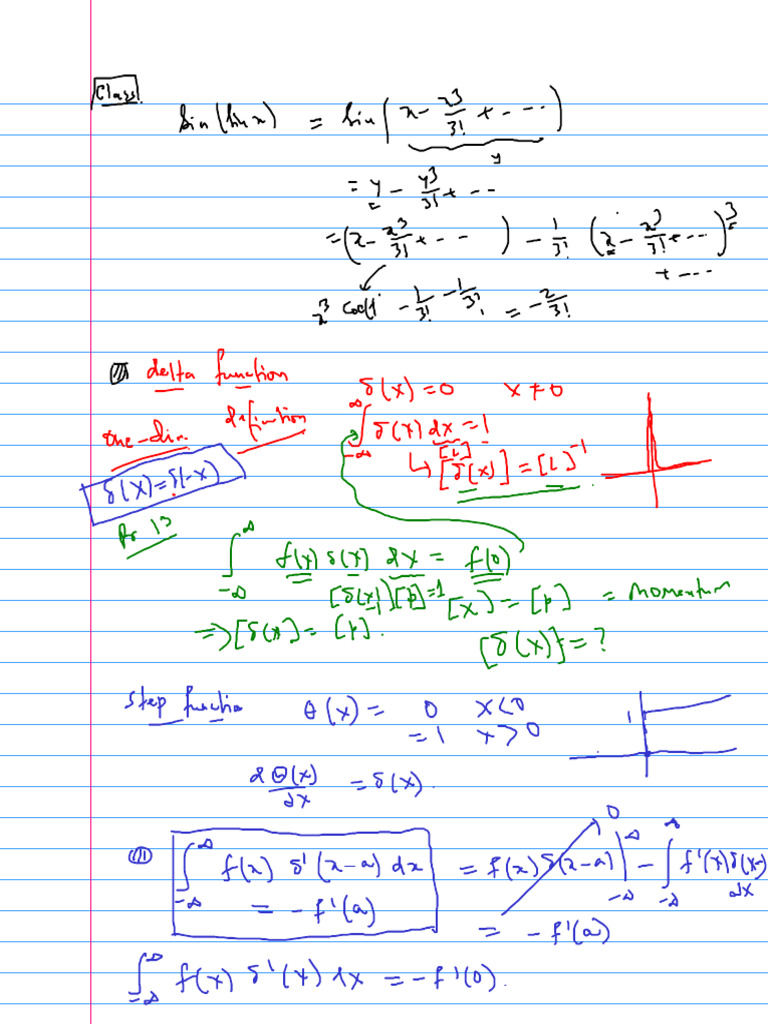 Class
sin(sin x) = sin(x - x³/3! + ----)
y
= y - y³/3! + --
= (x - x³/3! + -- --) - 1/3! (x - x³/3! + ---)³
+ ---
x³ coeff - 1/3! - 1/3! = - 2/3!
delta function
δ(x) = 0 x ≠ 0
one-dim definition
∫_{-∞}^{∞} δ(x) dx = 1
[L]
↳ [δ(x)] = [L]⁻¹
δ(x) = δ(-x)
Pr 13
∫_{-∞}^{∞} f(x) δ(x) dx = f(0)
[δ(x)][p] = 1 [x] = [p] = momentum
⇒ [δ(x)] = [p].
[δ(x)] = ?
step function θ(x) = 0 x < 0
= 1 x > 0
1
dθ(x)/dx = δ(x).
∫_{-∞}^{∞} f(x) δ'(x-a) dx = f(x) δ(x-a) |_{-∞}^{∞} - ∫_{-∞}^{∞} f'(x) δ(x-
0
dx
= - f'(a)
= - f'(a)
∫_{-∞}^{∞} f(x) δ'(x) dx = - f'(0).